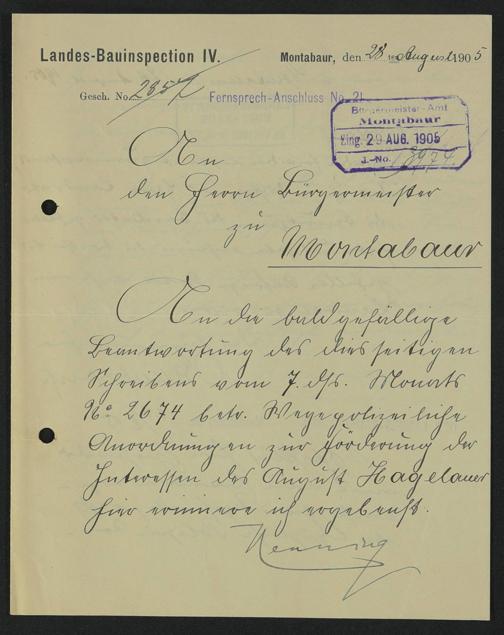 Landes-Bauinspection IV.
Montabaur, den 28 August 1905
Gesch. No. 2857
Fernsprech-Anschluss No. 21
Bürgermeister-Amt
Montabaur
Eing. 29 AUG. 1905
J.-No.
An
den Herrn Bürgermeister
zu
Montabaur
An die baldgefällige
Beantwortung des diesseitigen
Schreibens vom 7. dss. Monats
No. 2674 betr. Wegepolizeiliche
Anordnungen zur Förderung der
Interessen des August Hagelauer
hier erinnere ich ergebenst.